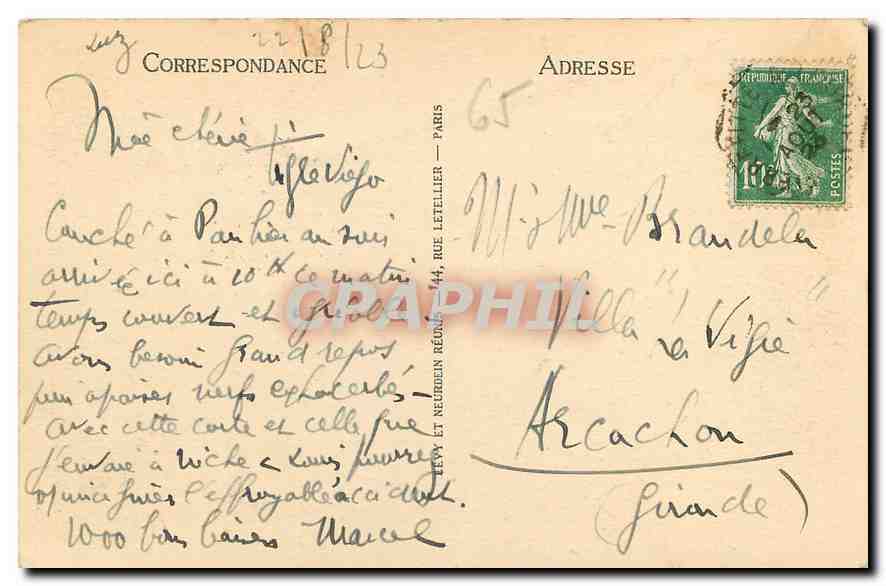 22/8/23
CORRESPONDANCE
ADRESSE
65
RÉPUBLIQUE FRANÇAISE
10c
POSTES
23
AOUT
23
chérie
Couché à hier au soir
arrivé ici à 10 h ce matin
temps couvert et
avons besoin grand repos
pour apaiser nerfs exhacerbés –
avec cette carte et celle que
j'envoie à & Louis pourrez
l'effroyable accident.
1000 bons baisers Marcel
LÉVY ET NEURDEIN RÉUNIS — 44, RUE LETELLIER — PARIS
CPAPHIL
Mr & Mme Brandela
Villa "La Vigie"
Arcachon
(Gironde)